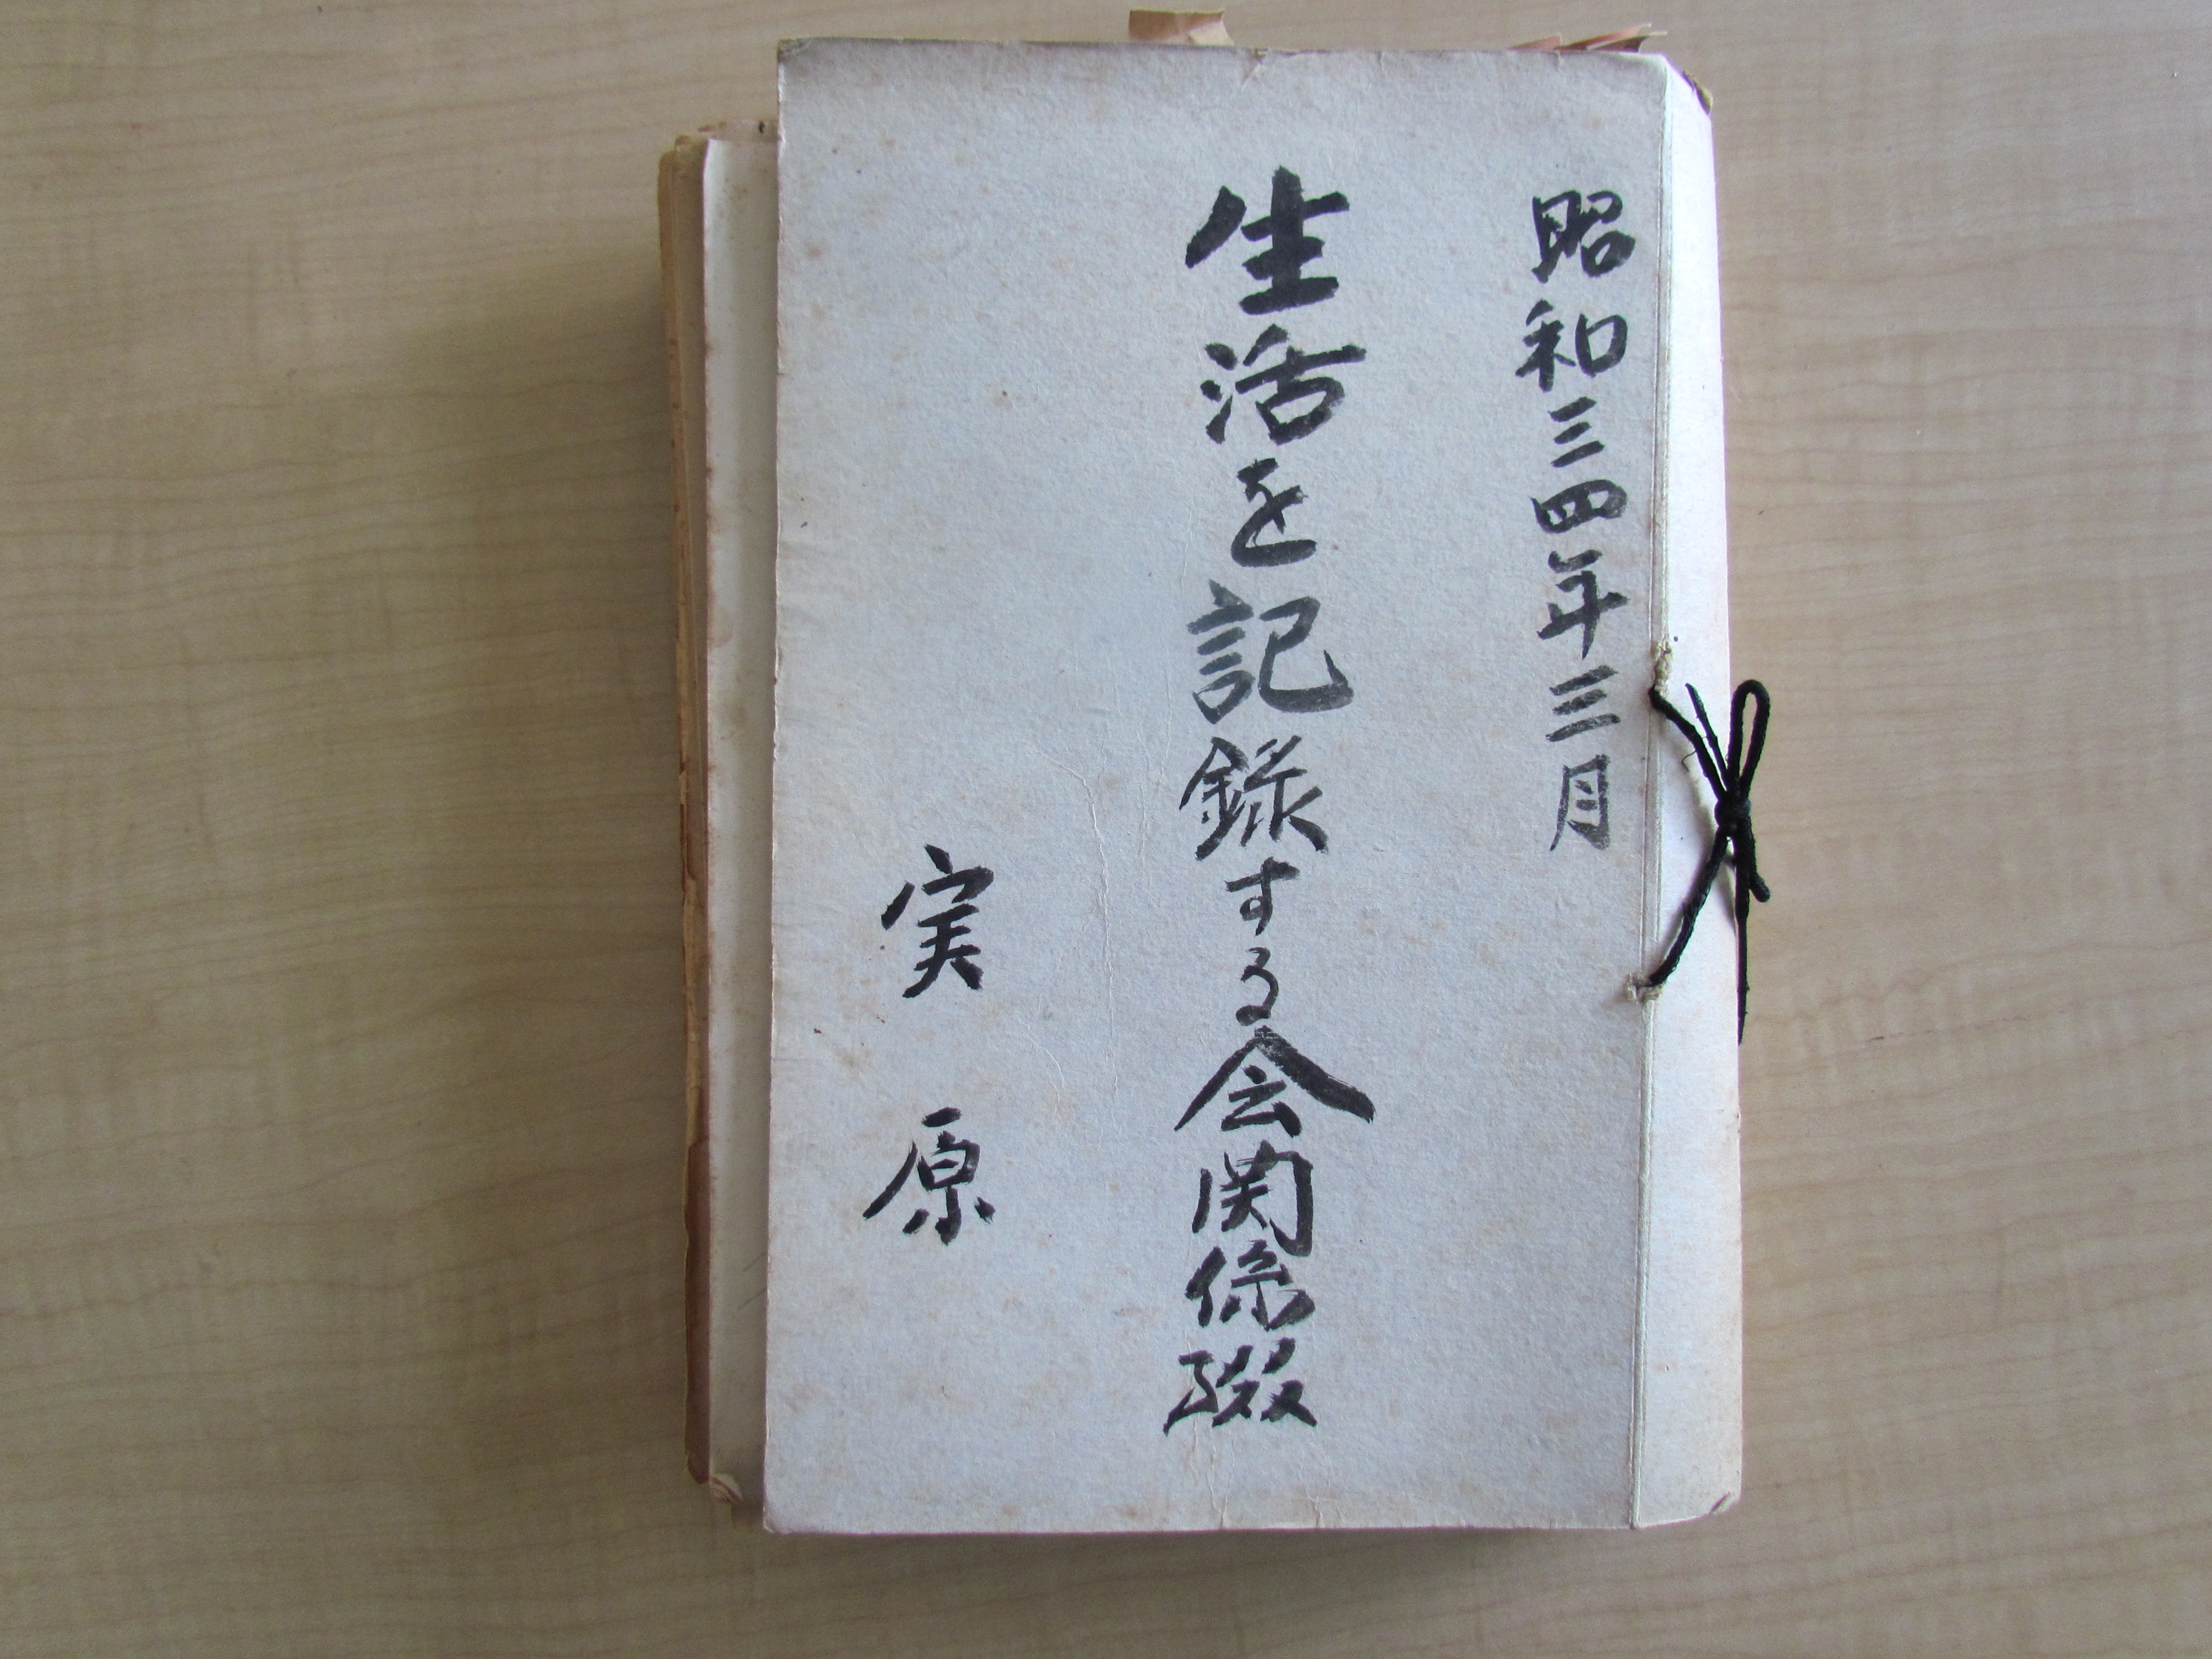 昭和三四年三月
生活を記録する会関係綴
実原